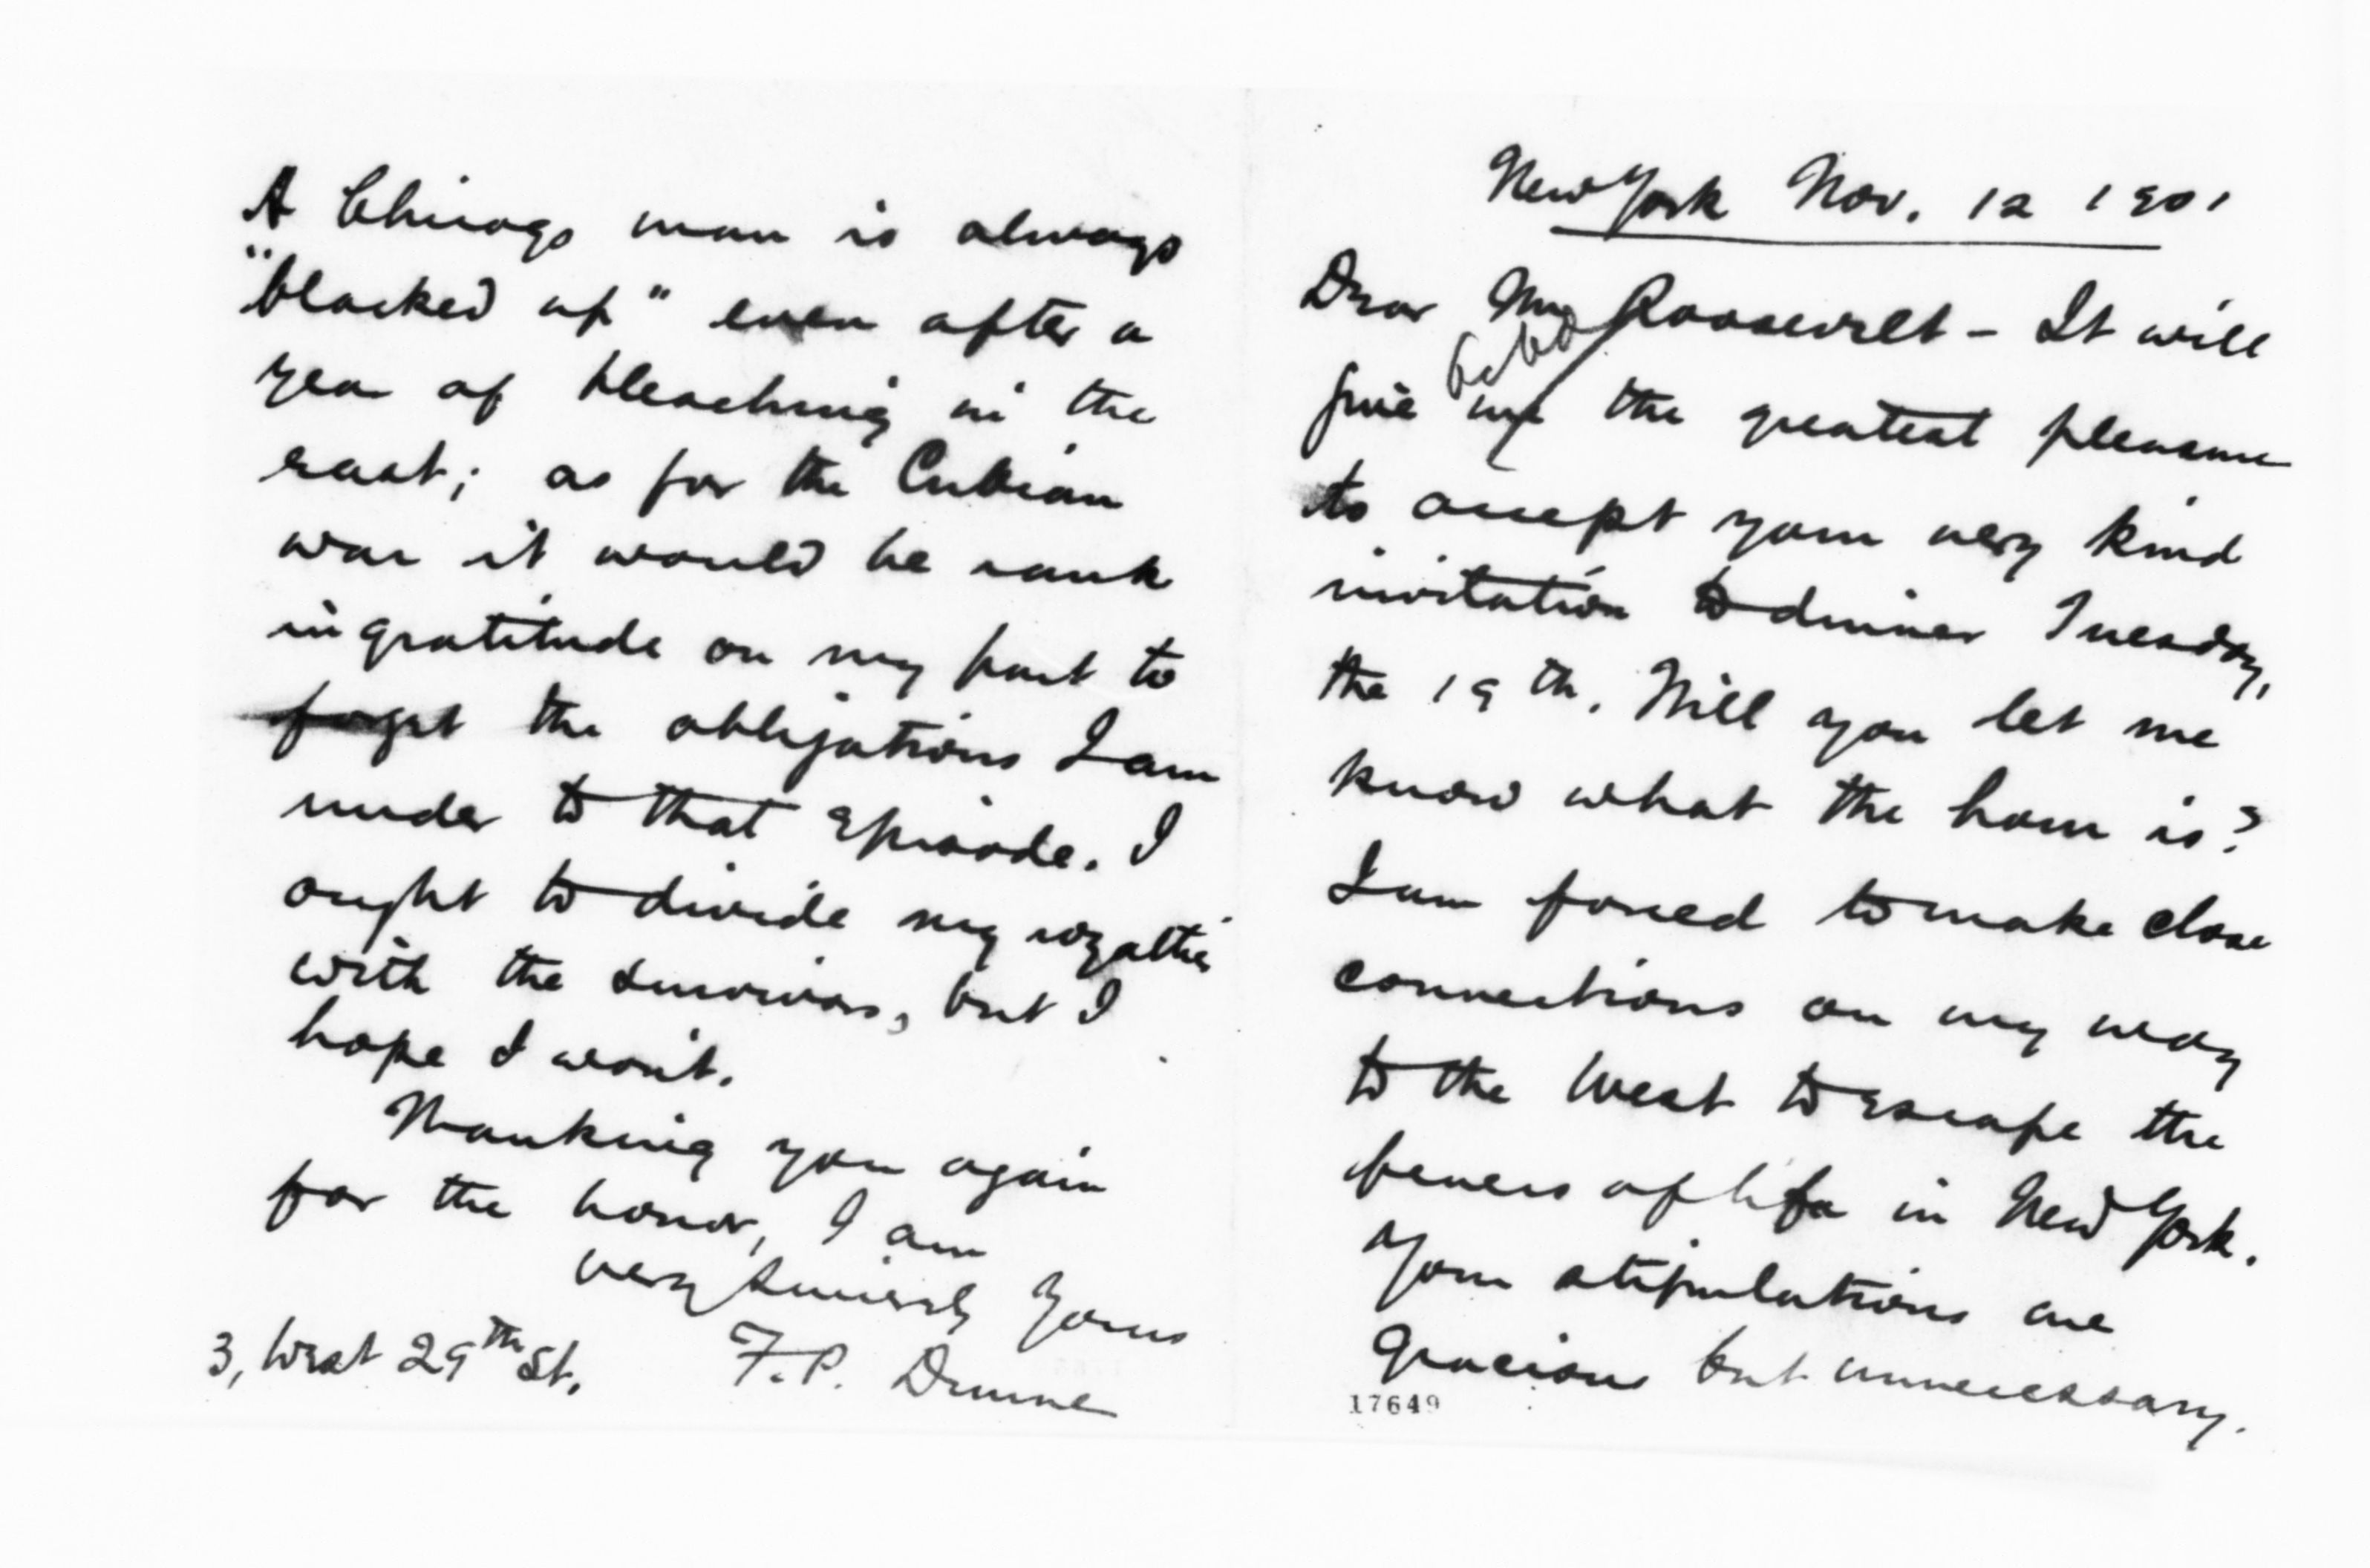 New York Nov. 12 1901
Dear Mr Roosevelt - It will
give me the greatest pleasure
to accept your very kind
invitation to dinner Tuesday,
the 19th. Will you let me
know what the hour is?
I am forced to make close
connections on my way
to the West to escape the
fevers of life in New York.
Your stipulations are
gracious but unnecessary.
17649
A Chicago man is always
"blacked up" even after a
year of bleaching in the
east; as for the Cubian
war it would be rank
ingratitude on my part to
forget the obligations I am
under to that episode. I
ought to divide my royalties
with the survivors, but I
hope I won't.
Thanking you again
for the honor, I am
very sincerely yours
F. P. Dunne
3, West 29th St.